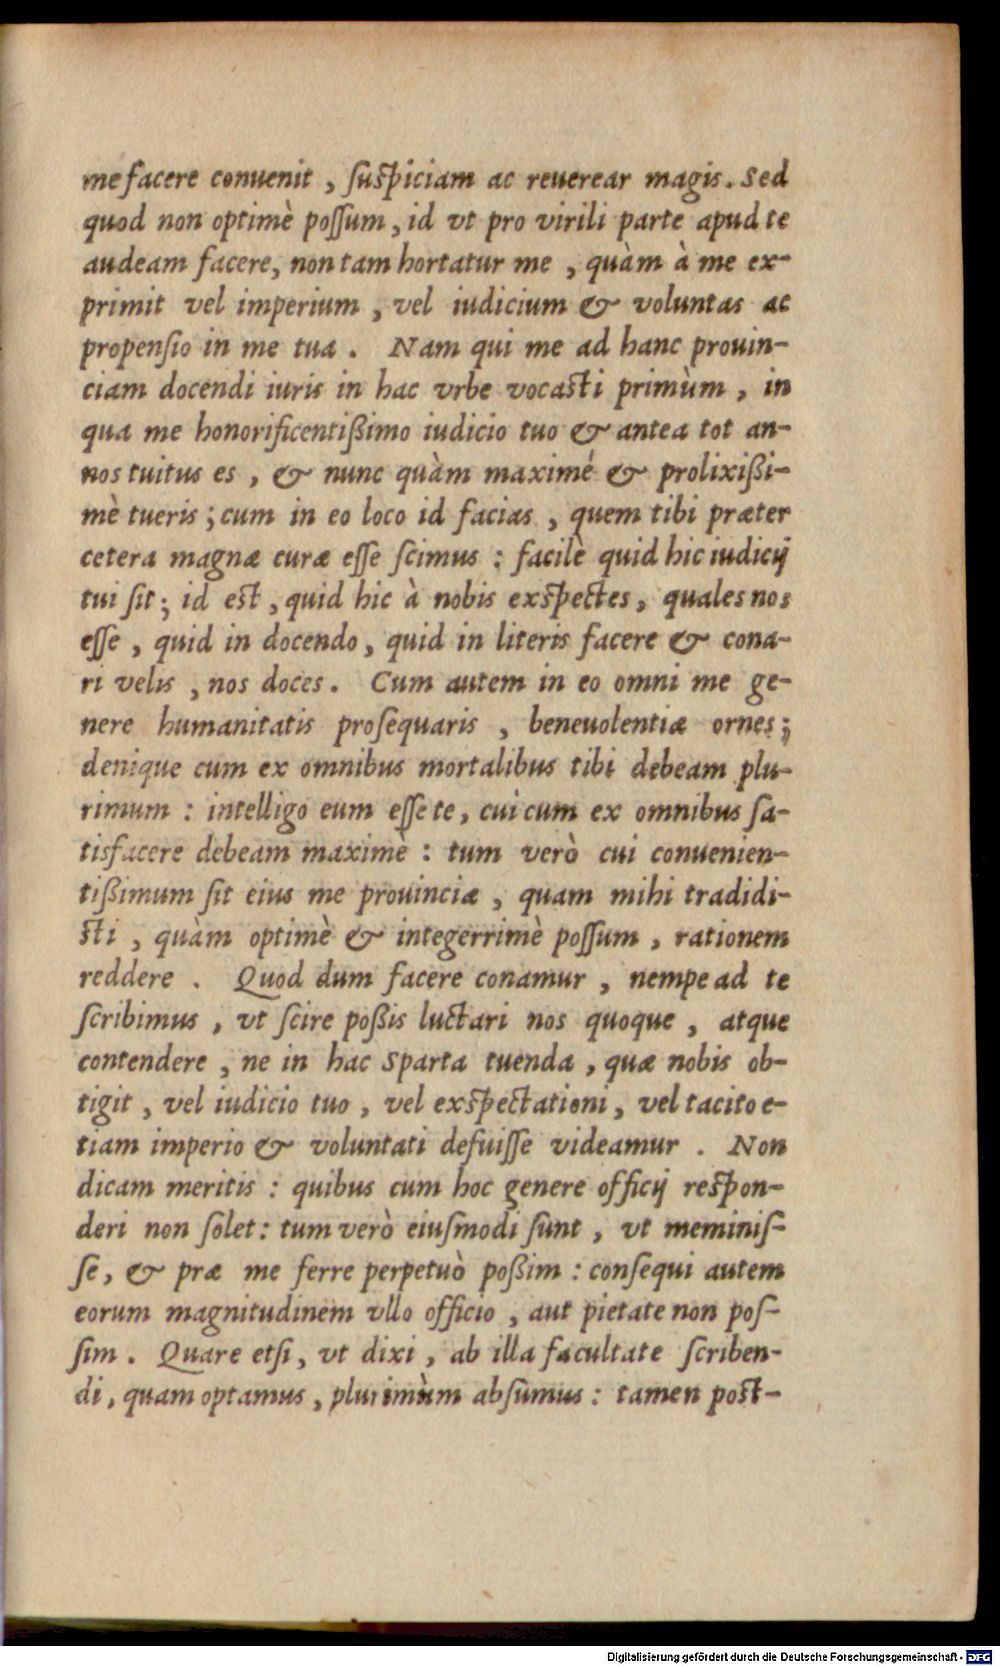 me facere conuenit , ſuſpiciam ac reuerear magis. Sed
quod non optimè poſſum, id vt pro virili parte apud te
audeam facere, non tam hortatur me , quàm à me ex-
primit vel imperium , vel iudicium & voluntas ac
propenſio in me tua . Nam qui me ad hanc prouin-
ciam docendi iuris in hac vrbe vocaſti primùm , in
qua me honorificentißimo iudicio tuo & antea tot an-
nos tuitus es , & nunc quàm maximé & prolixißi-
mè tueris ; cum in eo loco id facias , quem tibi præter
cetera magnæ curæ eſſe ſcimus : facilè quid hic iudicij
tui ſit; id eſt, quid hic à nobis exſpectes, quales nos
eſſe , quid in docendo, quid in literis facere & cona-
ri velis , nos doces. Cum autem in eo omni me ge-
nere humanitatis proſequaris , beneuolentiæ ornes;
denique cum ex omnibus mortalibus tibi debeam plu-
rimum : intelligo eum eſſe te, cui cum ex omnibus ſa-
tisfacere debeam maximè : tum verò cui conuenien-
tißimum ſit eius me prouinciæ , quam mihi tradidi-
ſti , quàm optimè & integerrimè poſſum , rationem
reddere . Quod dum facere conamur , nempe ad te
ſcribimus , vt ſcire poßis luctari nos quoque , atque
contendere , ne in hac Sparta tuenda , quæ nobis ob-
tigit , vel iudicio tuo , vel exſpectationi , vel tacito e-
tiam imperio & voluntati defuiſſe videamur . Non
dicam meritis : quibus cum hoc genere officij reſpon-
deri non ſolet: tum verò eiuſmodi ſunt , vt meminiſ-
ſe, & præ me ferre perpetuò poßim : conſequi autem
eorum magnitudinem vllo officio , aut pietate non poſ-
ſim . Quare etſi, vt dixi , ab illa facultate ſcriben-
di, quam optamus, plurimùm abſumus : tamen poſt-
Digitalisierung gefördert durch die Deutsche Forschungsgemeinschaft - DFG